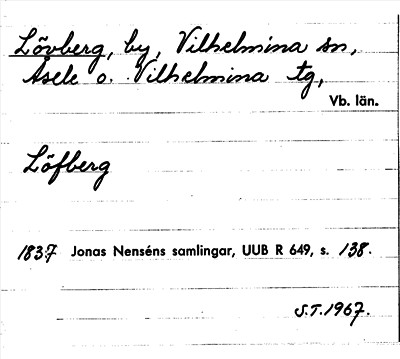 Lövberg, by, Vilhelmina sn,
Åsele o. Vilhelmina tg,
Vb. län.
Löfberg
1837 Jonas Nenséns samlingar, UUB R 649, s. 138.
S.T. 1967.